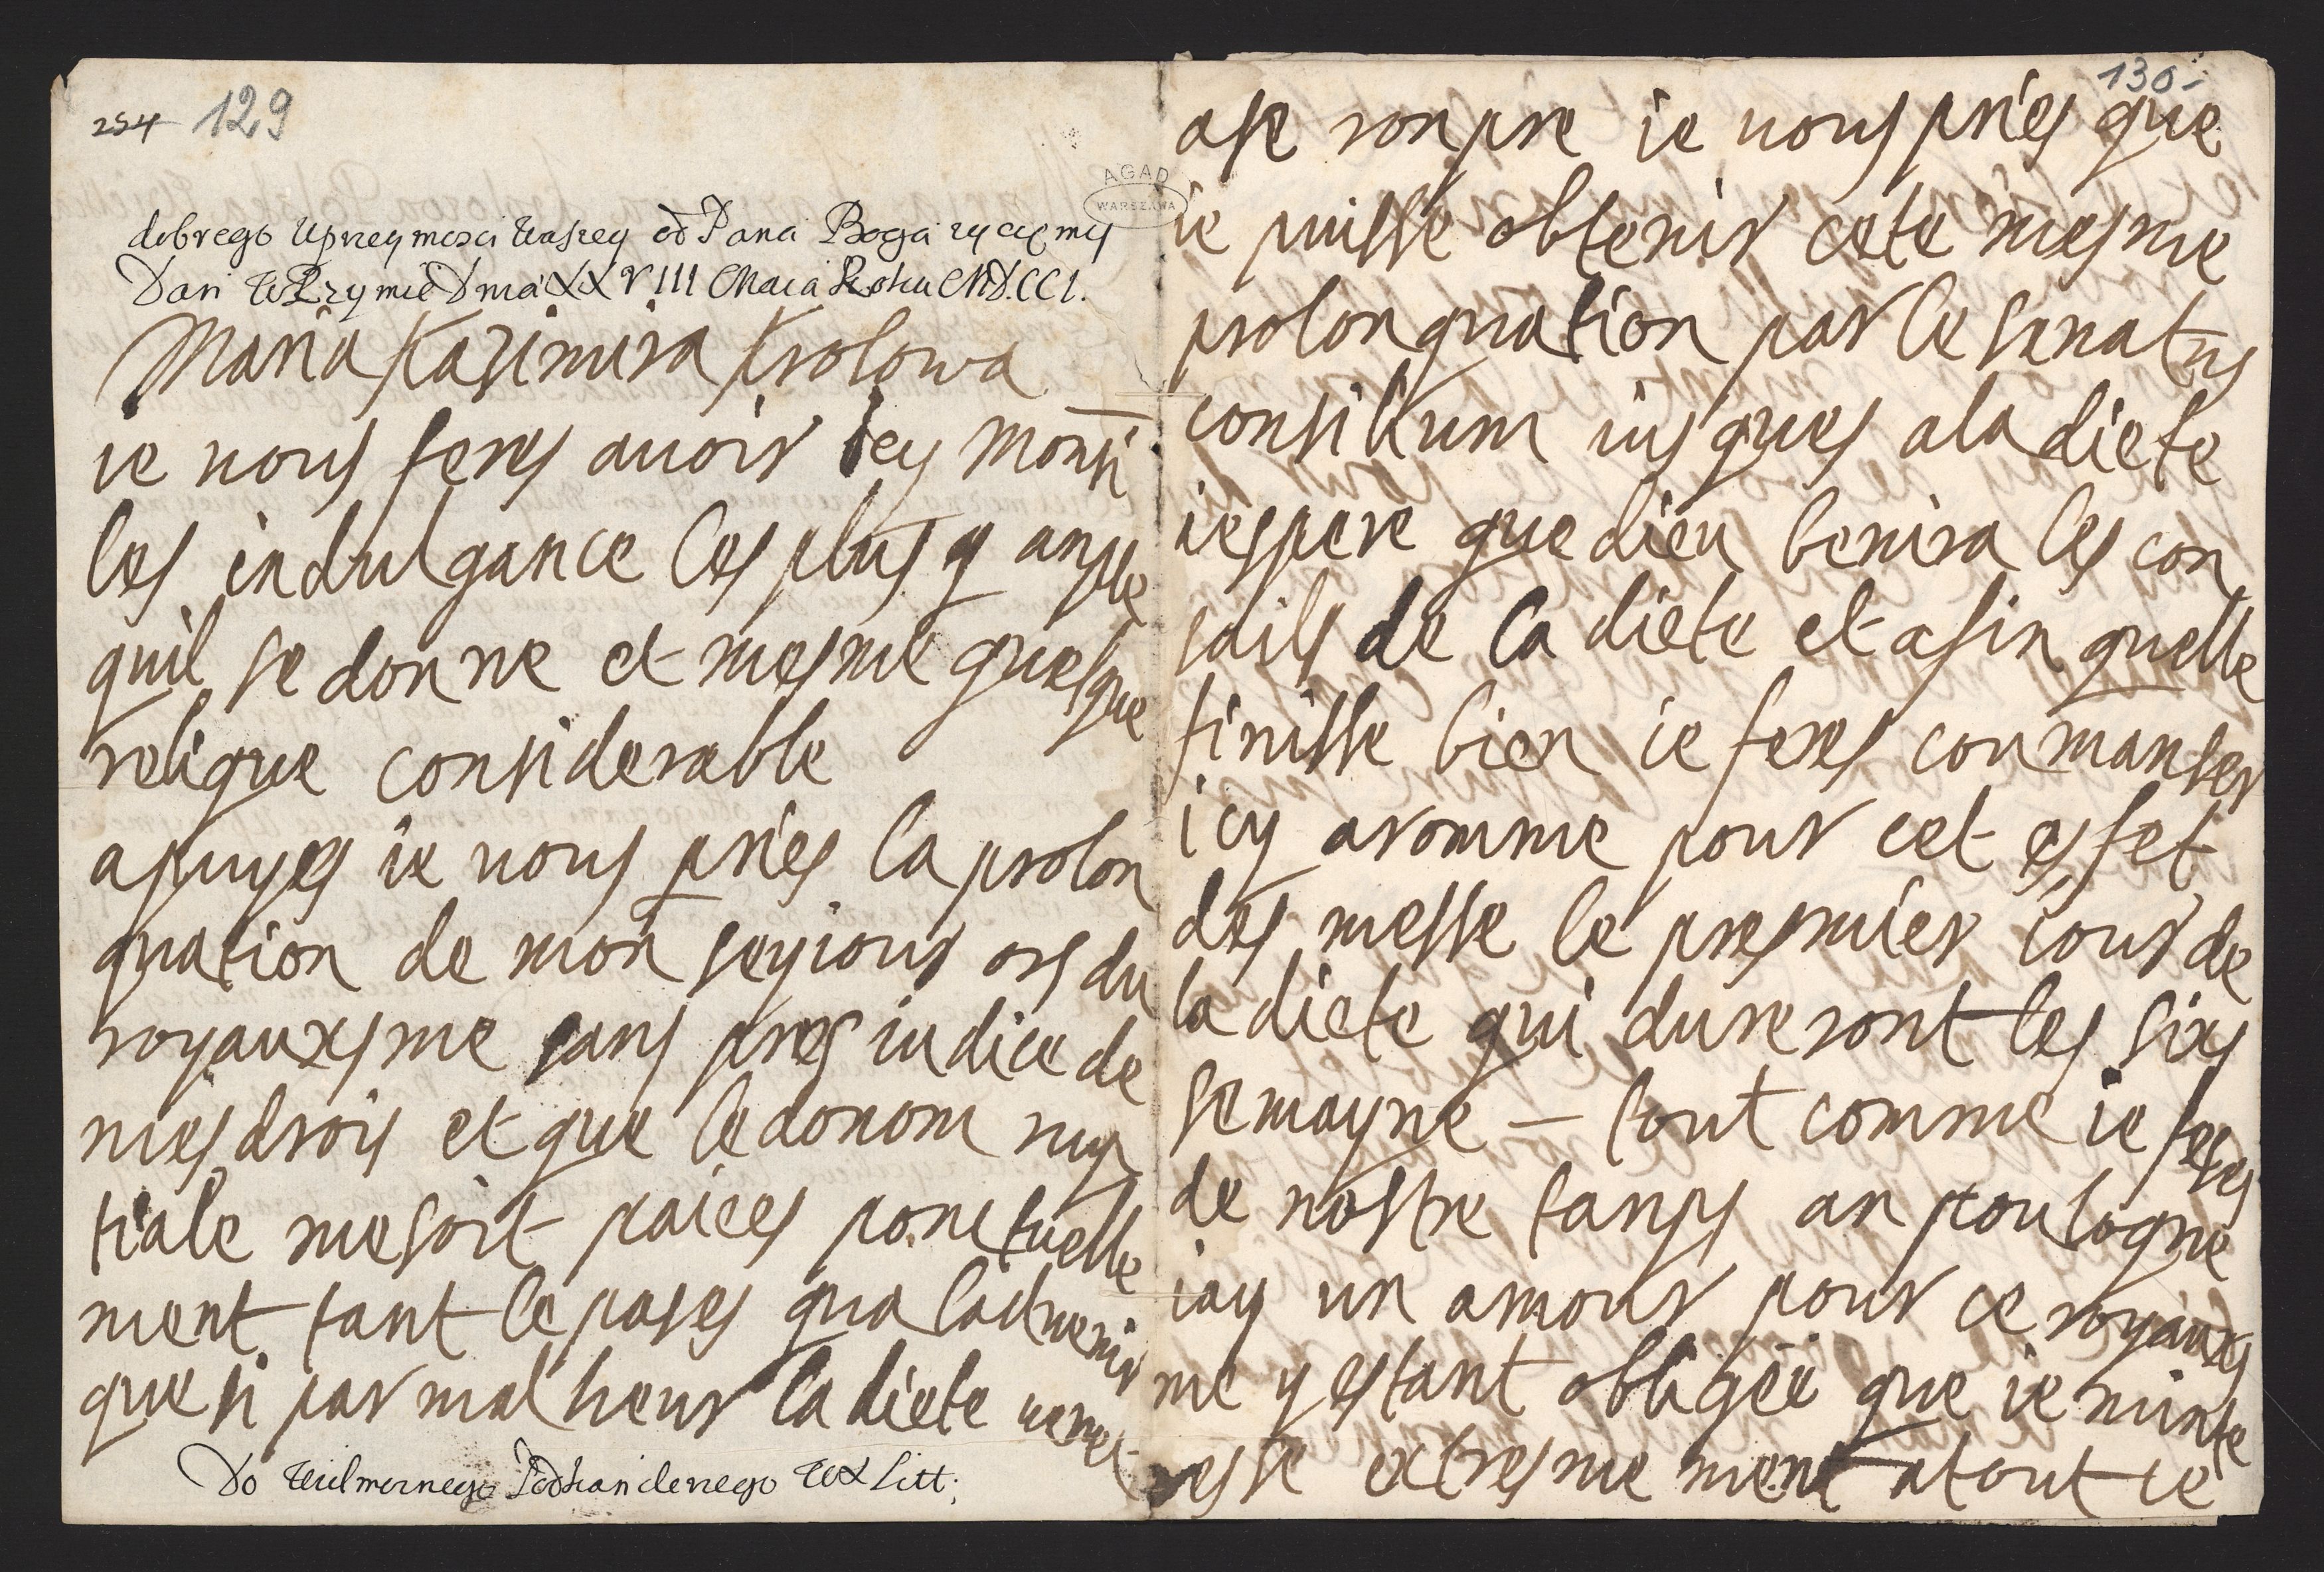 254 129
dobrego Uprzeymosci Waszey od Pana Boga zyczęmy
Dan w Rzymie Dnia XXVIII Maia Roku MD.CCI.
Maria Kazimira Krolowa
ie uous feres auoir icy Monsi
les indulgance les plus q ample
quil se donne et mesme quelque
relique considerable
apuyes ie uous pries la prolon
guation de mon seyiour ors du
royauxsme sans presiudice de
mes drois et que le donom nup
tiale me soit paiees ponctuelle
ment tant le pases qua laduenir
que si par malheur la diete uenet
Do Wielmoznego Podkanclerzego WX Litt:
AGAD
WARSZAWA
130
ase ronpre ie uous pries que
ie puisse obtenir cete mesme
prolonguation par le senatus
consilium iusques ala diete
iespere que dieu benira les con
sails de la diete et afin quelle
finisse bien ie feres conmanser
icy aromme pour cet esfet
des messe le presmier iour de
la diete qui dureront les sixs
semayne – tout comme ie feses
de nostre tanps an poulogne
iay un amour pour ce royauxs
me y estant obligée que ie minte
resse extresmement atout ce